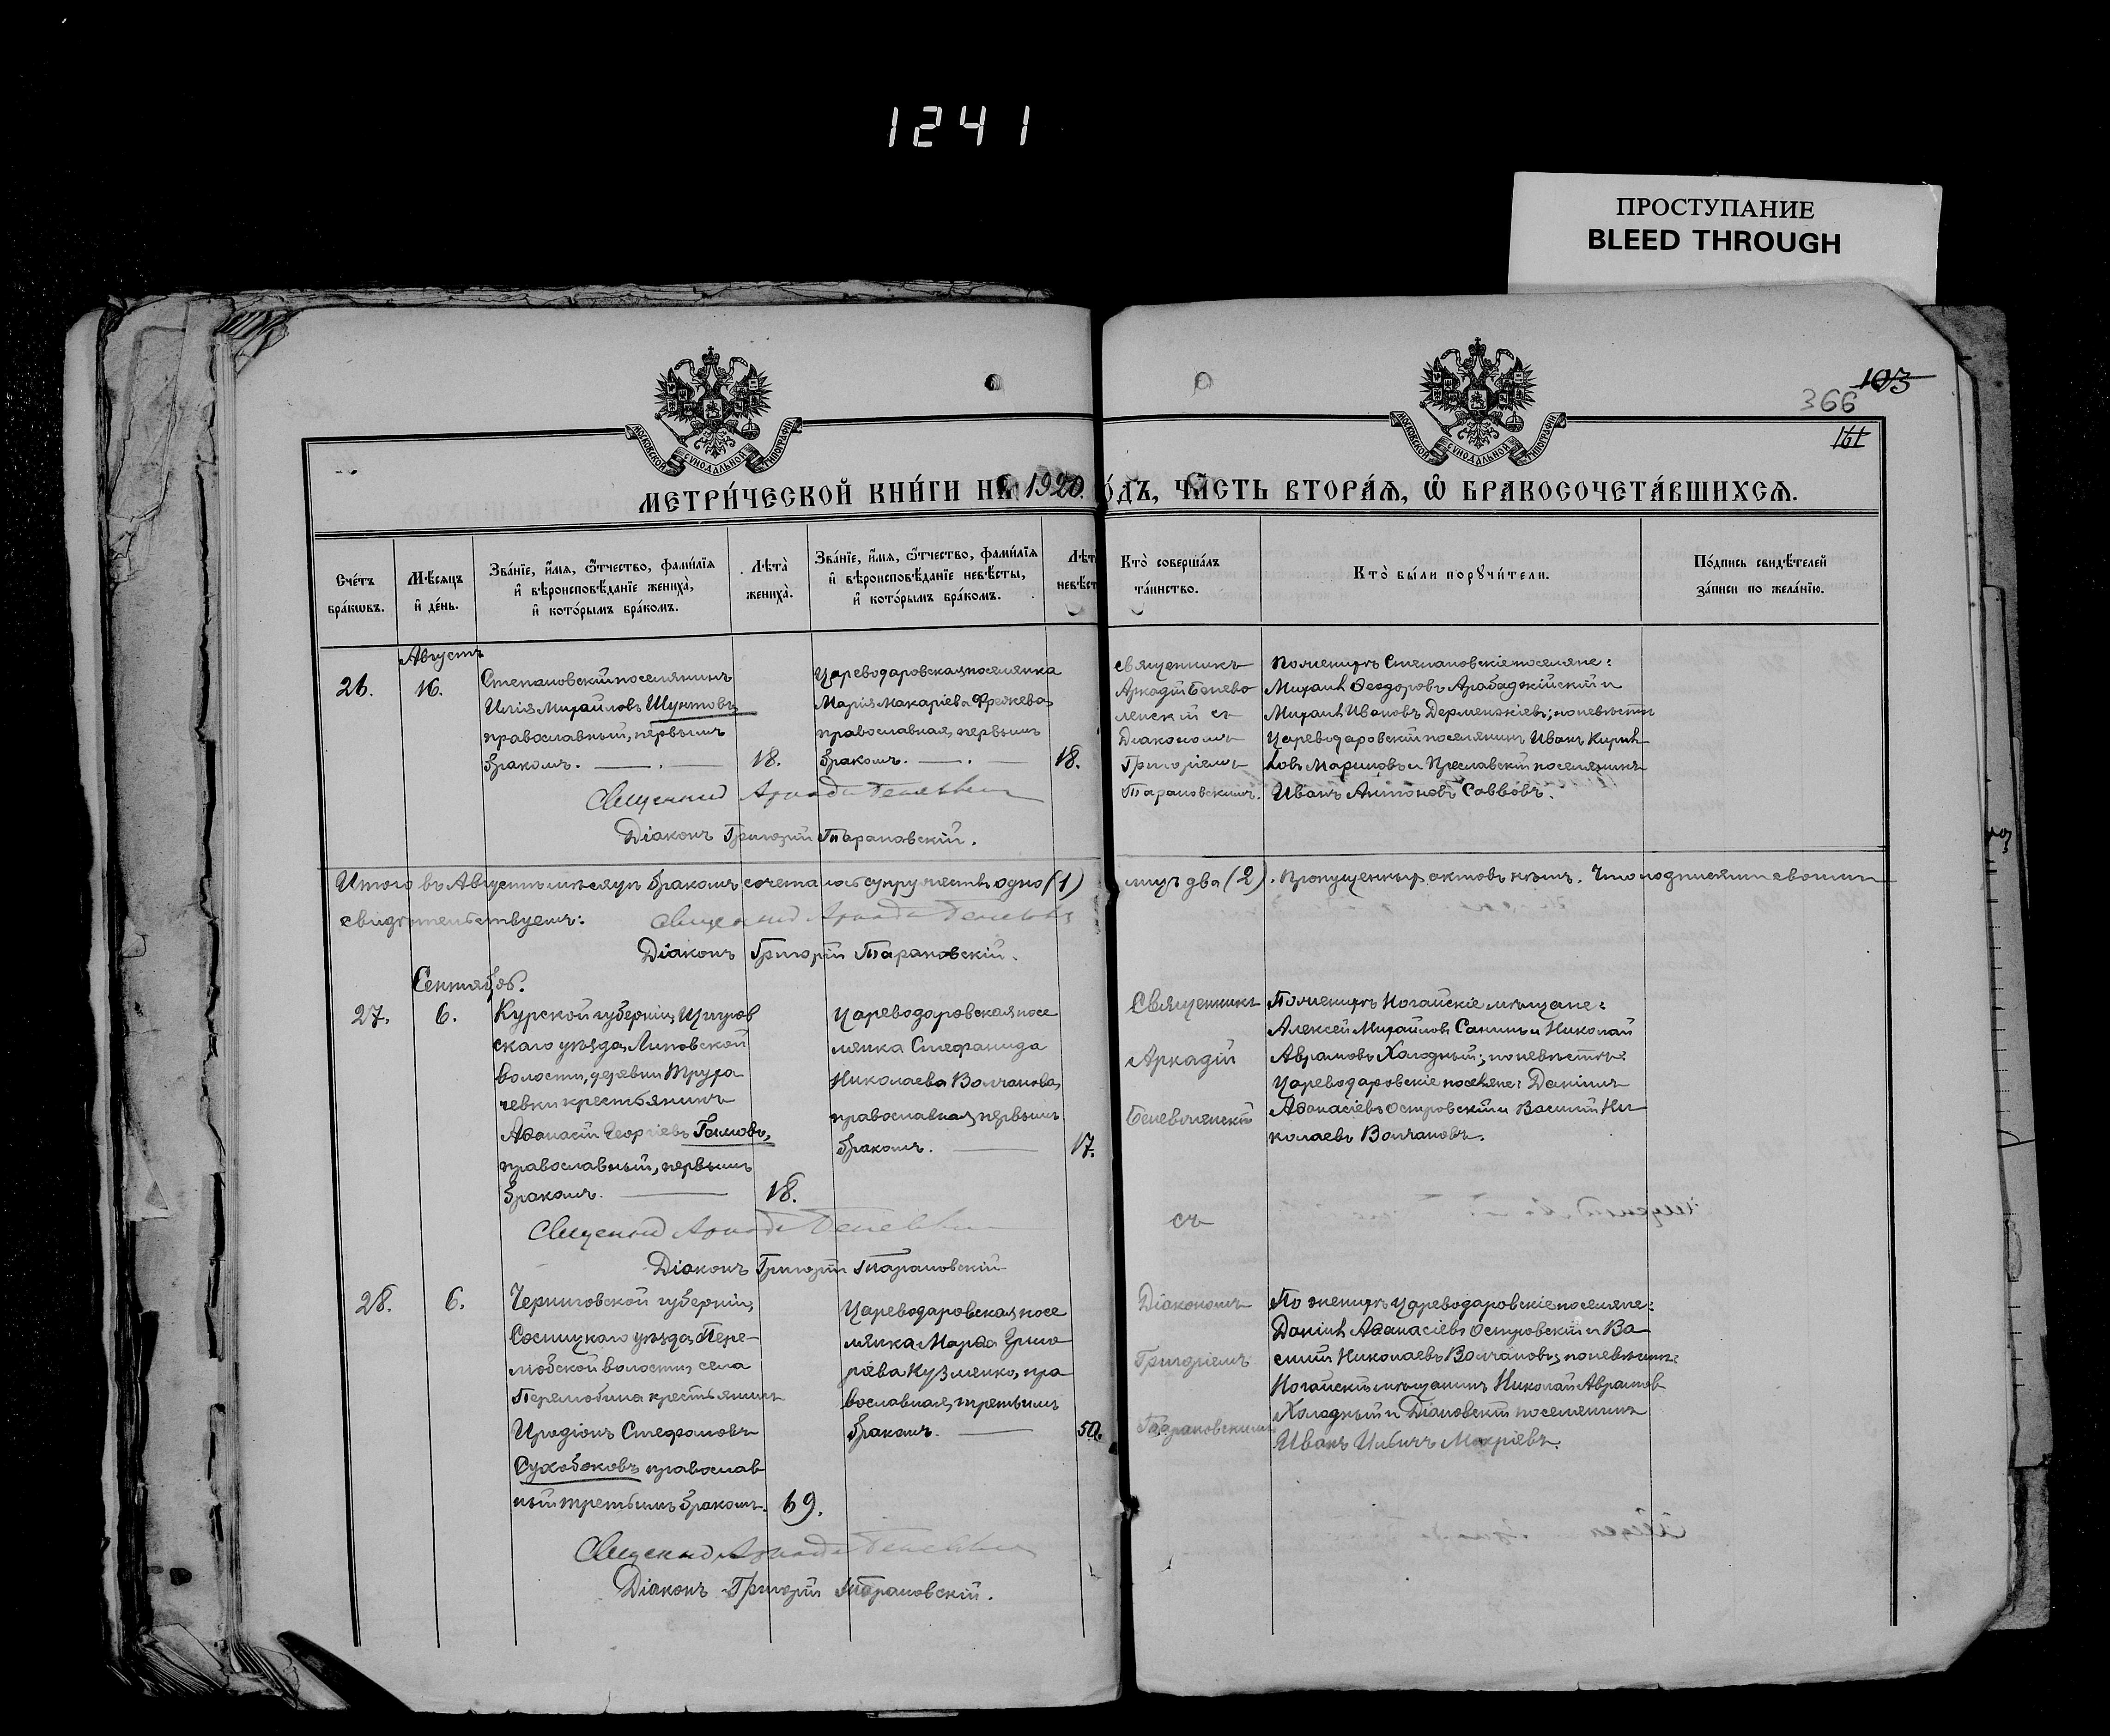 1241
ПРОСТУПАНИЕ
BLEED THROUGH
103
366
161
МОСКОВСКОЙ СУНОДАЛЬНОЙ ТИПОГРАФІИ
МОСКОВСКОЙ СУНОДАЛЬНОЙ ТИПОГРАФІИ
МЕТРИ́ЧЕСКОЙ КНИ́ГИ НА 1920. ГО́ДЪ, ЧА́СТЬ ВТОРА́Я, Ѡ БРАКОСОЧЕТА́ВШИХСЯ.
Сче́тъ бра́кωвъ.
Мѣ́сяцъ и҆ де́нь.
Зва́нїе, и҆́мя, ѻ҆́тчество, фами́лїя и҆ вѣроисповѣ́данїе жениха̀, и҆ кото́рымъ бра́комъ.
Лѣта̀ жениха̀.
Зва́нїе, и҆́мя, ѻ҆́тчество, фами́лїя и҆ вѣроисповѣ́данїе невѣ́сты, и҆ кото́рымъ бра́комъ.
Лѣт невѣст
Кто̀ соверша́лъ та́инство.
Кто̀ бы́ли порꙋчи́тели.
По́дпись свидѣ́телей за́писи по жела́нїю.
Августъ
26.
16.
Степановскій поселянинъ
Илія Михайловъ Шунтовъ
православный, первымъ
бракомъ.
18.
Цареводаровская поселянка
Марія Макаріева Фрежева,
православная, первымъ
бракомъ.
18.
Священникъ
Аркадій Беневоленскій съ
Діакономъ
Григоріемъ
Тарановскимъ.
По женихѣ Степановскіе поселяне:
Михаилъ Ѳеодоровъ Арабаджійскій и
Михаилъ Ивановъ Дерменжіевъ; по невѣстѣ
Цареводаровскій поселянинъ Иванъ Кирил
ловъ Мариновъ и Преславскій поселянинъ
Иванъ Антоновъ Саввовъ.
Священникъ Аркадій Беневоленскій
Діаконъ Григорій Тарановскій.
Итого въ Августѣ мѣсяцѣ бракомъ сочеталось супружествъ одно (1) лицъ два (2). Пропущенныхъ актовъ нѣтъ. Что подписями своими
свидѣтельствуемъ: Священникъ Аркадій Беневоленскій
Діаконъ Григорій Тарановскій.
Сентябрь.
27.
6.
Курской губерніи, Щигров
скаго уѣзда, Липовской
волости, деревни Труха
чевки крестьянинъ
Аѳанасій Георгіевъ
православный, первымъ
бракомъ.
18.
Цареводаровская посе
лянка Стефанида
Николаева Волчанова,
православная, первымъ
бракомъ.
17.
Священникъ
Аркадій
Беневоленскій
съ
По женихѣ Ногайскіе мѣщане:
Алексей Михайловъ Санинъ и Николай
Аврамовъ Холодный; по невѣстѣ:
Цареводаровскіе поселяне: Даніилъ
Аѳанасіевъ Островскій и Василій Ни
колаевъ Волчановъ.
Священникъ Аркадій Беневоленскій
Діаконъ Григорій Тарановскій
28.
6.
Черниговской губерніи,
Сосницкаго уѣзда, Пере-
любской волости, села
Перелюбина крестьянинъ
Иродіонъ Стефановъ
Сухобоковъ православ
ный третьимъ бракомъ.
69.
Цареводаровская посе
лянка Марѳа Григо
ріева Кузменко, пра
вославная, третьимъ
бракомъ.
50.
Діакономъ
Григоріемъ
Тарановскимъ
По женихѣ Цареводаровскіе поселяне:
Даніилъ Аѳанасіевъ Островскій и Ва
силій Николаевъ Волчановъ, по невѣстѣ:
Ногайскій мѣщанинъ Николай Аврамов
Холодный и Діановскій поселянинъ
Иванъ Ильичъ Мокріевъ.
Священникъ Аркадій Беневоленскій
Діаконъ Григорій Тарановскій.